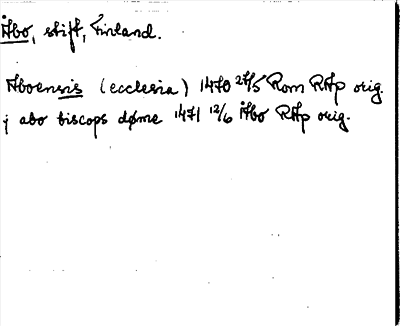 Åbo, stift, Finland.
Aboensis (ecclesia) 1470 27/5 Rom RAp orig.
j abo biscops døme 1471 12/6 Åbo RAp orig.